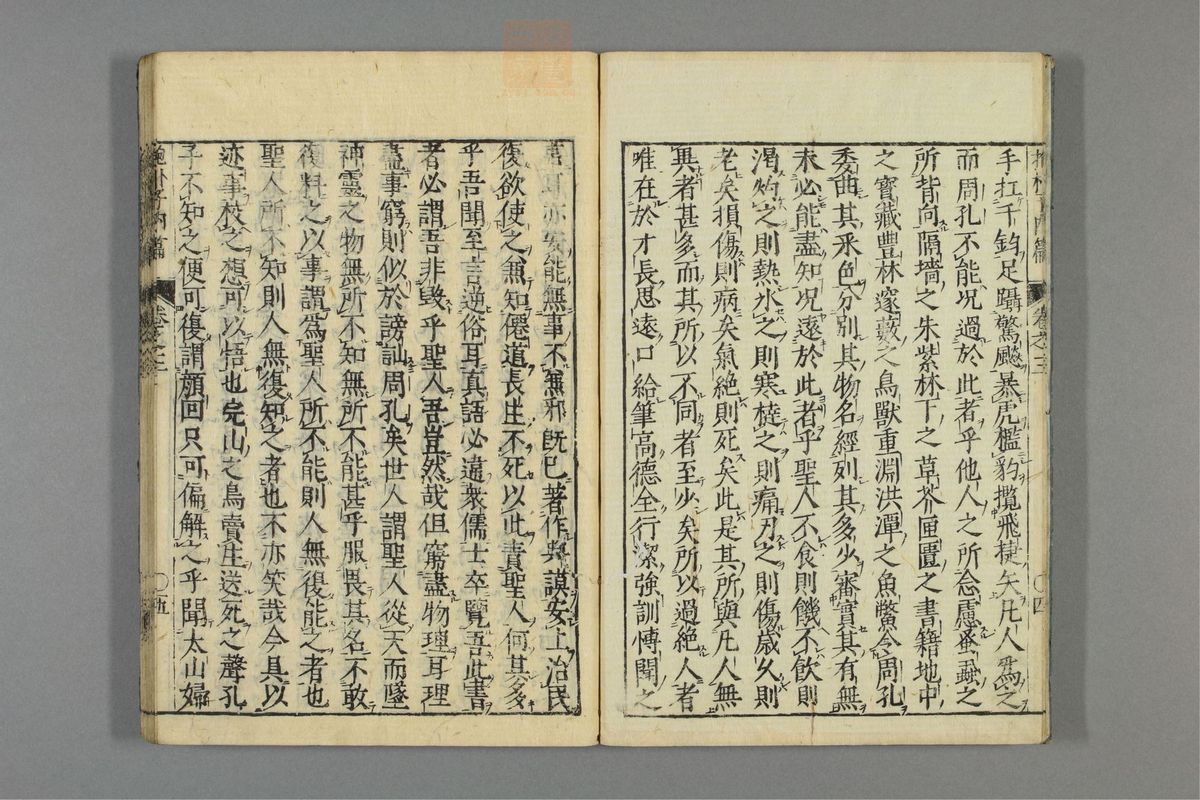 手扛千鈞足躡驚飈暴虎檻豹攬飛捷矢凡人爲之
而周孔不能况過於此者乎他人之所念慮蚤蝨之
所背向隔墻之朱紫林下之草芥匣匱之書籍地中
之寶藏豐林邃藪之鳥獸重淵洪潭之魚鱉令周孔
委曲其采色分別其物名經列其多少審實其有無
未必能盡知况遠於此者乎聖人不食則饑不飲則
渴灼之則熱水之則寒撻之則痛刃之則傷歲久則
老矣損傷則病矣氣絶則死矣此是其所與凡人無
異者甚多而其所以不同者至少矣所以過絶人者
唯在於才長思遠口給筆高德全行潔強訓愽聞之
耳亦安能無事不兼邪旣已著作典謨安上治民
復欲使之兼知僊道長生不死以此責聖人何其多
乎吾聞至言逆俗耳真語必違衆儒士卒覽吾此書
者必謂吾非毀乎聖人吾豈然哉但窮盡物理耳理
盡事窮則似於謗訕周孔矣世人謂聖人從天而墜
神靈之物無所不知無所不能甚乎服畏其名不敢
復料之以事謂爲聖人所不能則人無復能之者也
聖人所不知則人無復知之者也不亦笑哉今具以
迹事校之想可以悟也完山之鳥賣生送死之聲孔
子不知之便可復謂顔回只可偏解之乎聞太山婦
抱朴子内篇 卷之三 〇四
抱朴子内篇 卷之三 〇五